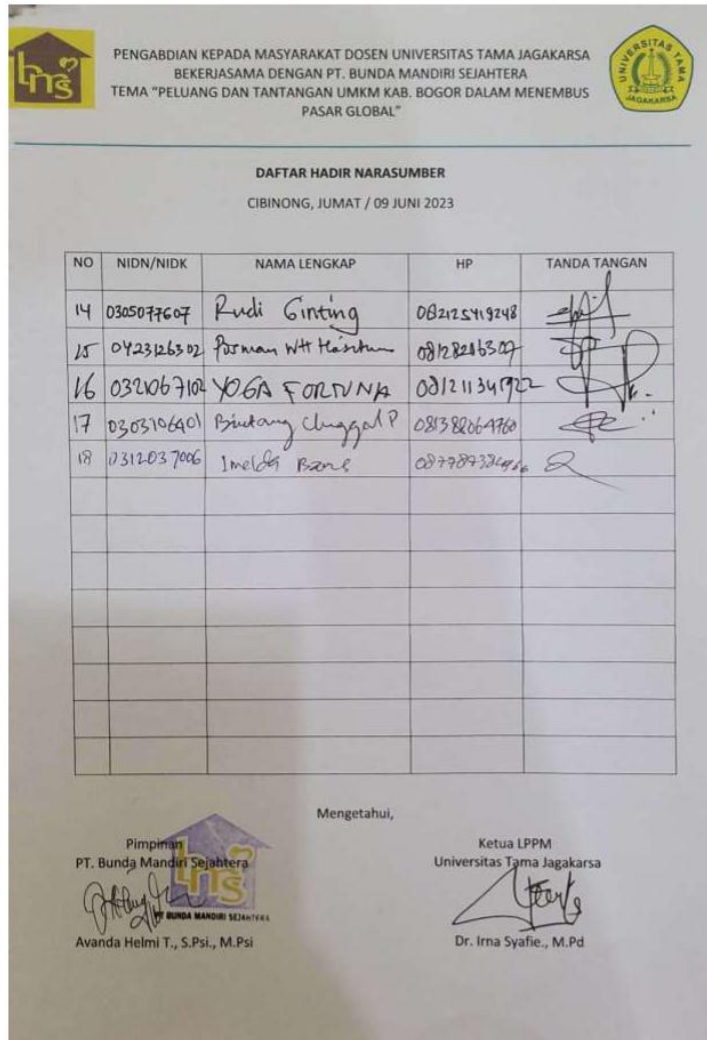 bms
PENGABDIAN KEPADA MASYARAKAT DOSEN UNIVERSITAS TAMA JAGAKARSA
BEKERJASAMA DENGAN PT. BUNDA MANDIRI SEJAHTERA
TEMA “PELUANG DAN TANTANGAN UMKM KAB. BOGOR DALAM MENEMBUS
PASAR GLOBAL”
UNIVERSITAS TAMA
JAGAKARSA
DAFTAR HADIR NARASUMBER
CIBINONG, JUMAT / 09 JUNI 2023
NO NIDN/NIDK NAMA LENGKAP HP TANDA TANGAN
14 0305077607 Rudi Ginting 082125419248
15 0423126302 Posman WH 08128216307
16 0321067102 YOGA FORTUNA 081211341922
17 0303106401 Bintang P 081388064760
18 0312037006 Imelda
Mengetahui,
Pimpinan Ketua LPPM
PT. Bunda Mandiri Sejahtera Universitas Tama Jagakarsa
bms
PT BUNDA MANDIRI SEJAHTERA
Avanda Helmi T., S.Psi., M.Psi Dr. Irna Syafie., M.Pd